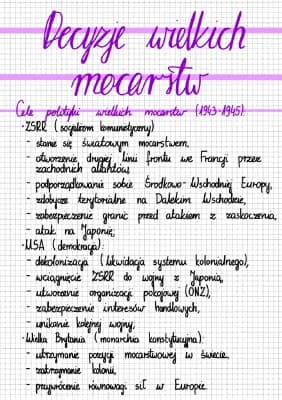 Decyzje wielkich
mocarstw
Cele polityki wielkich mocarstw (1943-1945):
·ZSRR (socjalizm komunistyczny)
- stanie się światowym mocarstwem,
- otworzenie drugiej linii frontu we Francji przez
zachodnich aliantów,
- podporządkowanie sobie Środkowo-Wschodniej Europy,
- zdobycze terytorialne na Dalekim Wschodzie,
- zabezpieczenie granic przed atakiem z zaskoczenia,
- atak na Japonię;
·USA (demokracja):
- dekolonizacja (likwidacja systemu kolonialnego),
- wciągnięcie ZSRR do wojny z Japonią,
- utworzenie organizacji pokojowej (ONZ),
- zabezpieczenie interesów handlowych,
- unikanie kolejnej wojny,
·Wielka Brytania (monarchia konstytucyjna):
- utrzymanie pozycji mocarstwowej w świecie,
- zatrzymanie kolonii,
- przywrócenie równowagi sił w Europie.